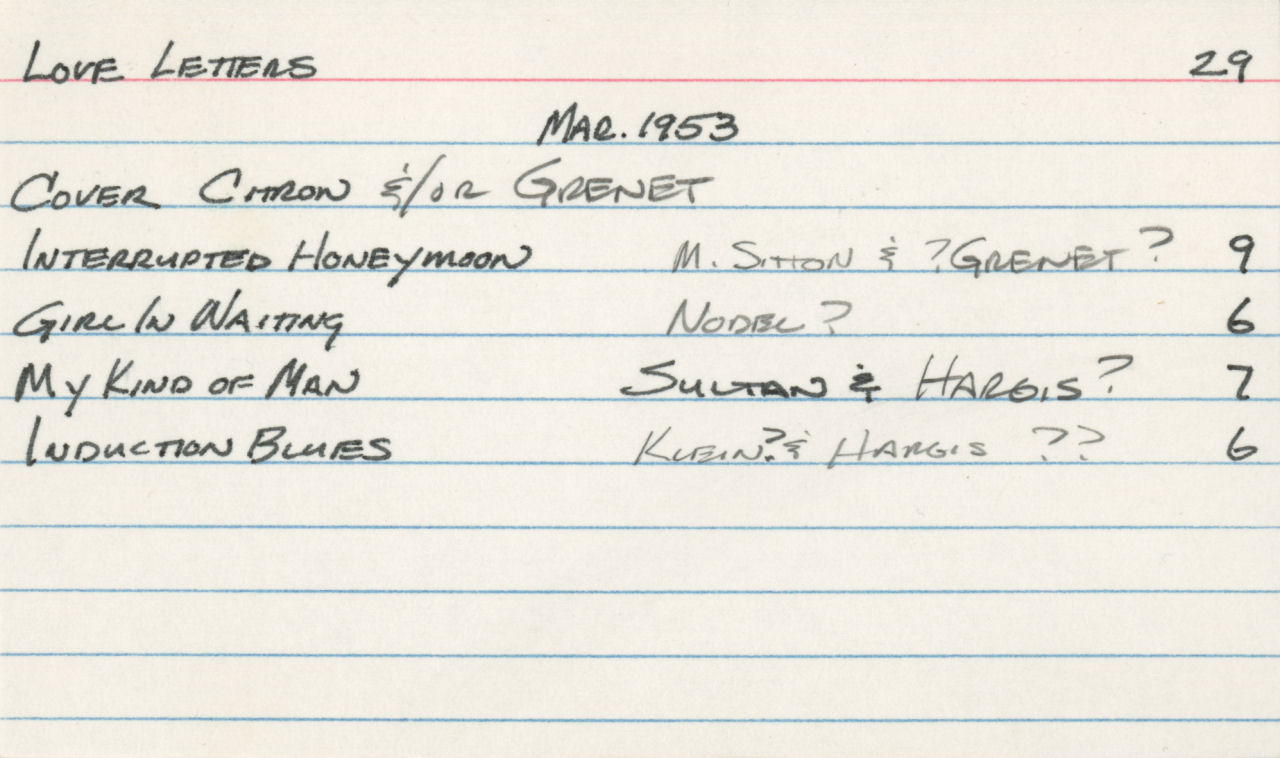 LOVE LETTERS 29
MAR. 1953
COVER CITRON &/OR GRENET
INTERRUPTED HONEYMOON M. SITTON & ?GRENET? 9
GIRL IN WAITING NODEL? 6
MY KIND OF MAN SULTAN & HARGIS? 7
INDUCTION BLUES KLEIN? & HARGIS ?? 6